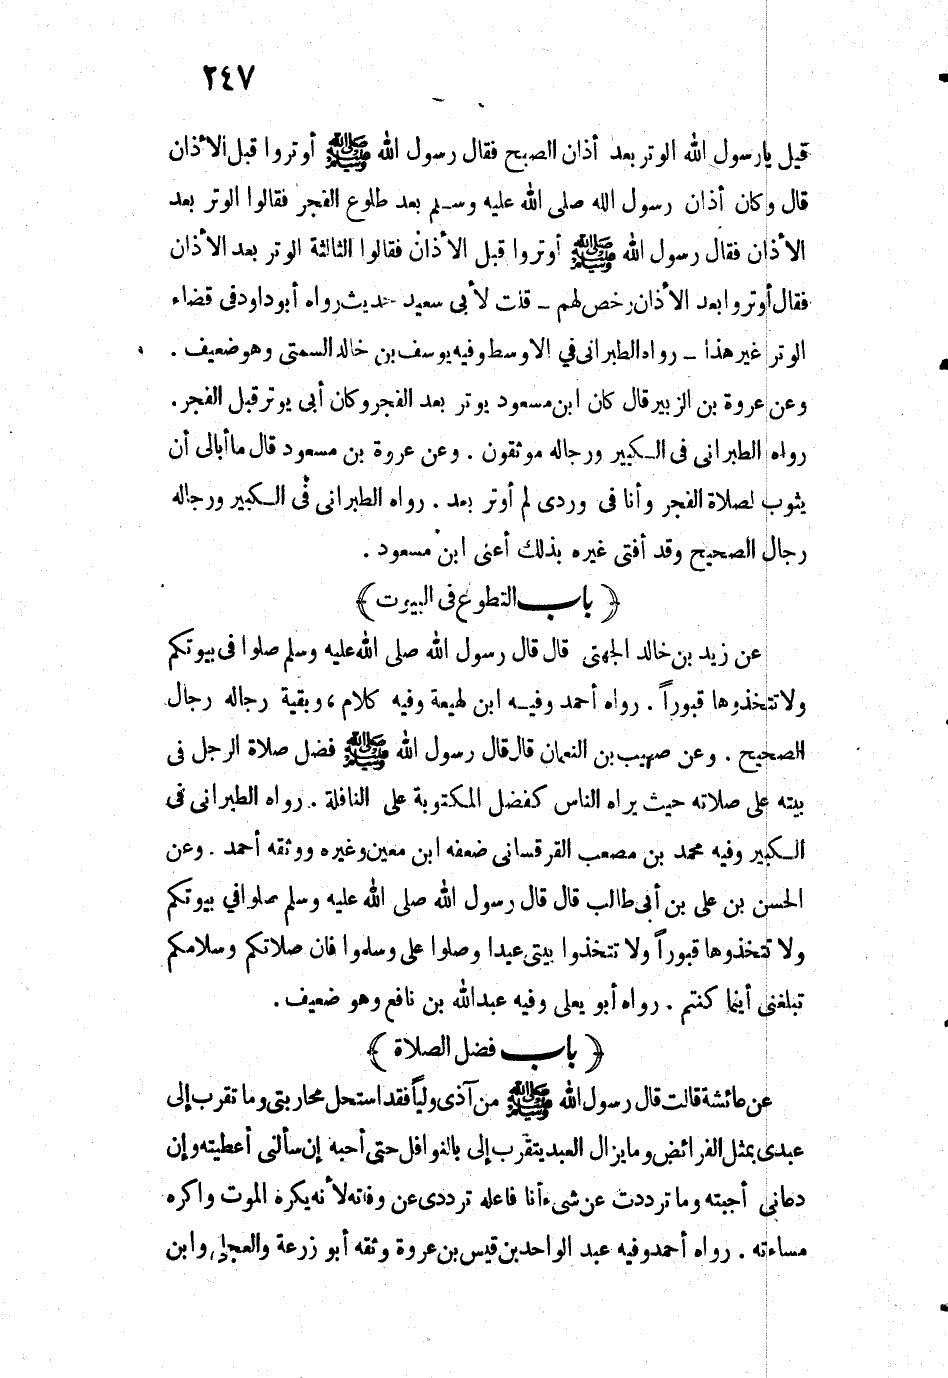 ٢٤٧
قيل يارسول الله الوتر بعد أذان الصبح فقال رسول الله ﷺ أوتروا قبل الأذان
قال وكان أذان رسول الله صلى الله عليه وسلم بعد طلوع الفجر فقالوا الوتر بعد
الأذان فقال رسول الله ﷺ أوتروا قبل الأذان فقالوا الثالثة الوتر بعد الأذان
فقال أوتروا بعد الأذان رخص لهم - قلت لأبى سعيد حديث رواه أبوداود فى قضاء
الوتر غير هذا - رواه الطبرانى في الاوسط وفيه يوسف بن خالد السمتى وهو ضعيف .
وعن عروة بن الزبير قال كان ابن مسعود يوتر بعد الفجر وكان أبى يوتر قبل الفجر.
رواه الطبرانى فى الكبير ورجاله موثقون . وعن عروة بن مسعود قال ما أبالى أن
يثوب لصلاة الفجر وأنا فى وردى لم أوتر بعد . رواه الطبرانى فى الكبير ورجاله
رجال الصحيح وقد أفتى غيره بذلك أعنى ابن مسعود .
﴿ باب التطوع فى البيوت ﴾
عن زيد بن خالد الجهنى قال قال رسول الله صلى الله عليه وسلم صلوا فى بيوتكم
ولا تتخذوها قبوراً . رواه أحمد وفيه ابن لهيعة وفيه كلام ، وبقية رجاله رجال
الصحيح . وعن صهيب بن النعمان قال قال رسول الله ﷺ فضل صلاة الرجل فى
بيته على صلاته حيث يراه الناس كفضل المكتوبة على النافلة . رواه الطبرانى فى
الكبير وفيه محمد بن مصعب القرقسانى ضعفه ابن معين وغيره ووثقه أحمد . وعن
الحسن بن على بن أبى طالب قال قال رسول الله صلى الله عليه وسلم صلوا في بيوتكم
ولا تتخذوها قبوراً ولا تتخذوا بيتى عيدا وصلوا على وسلموا فان صلاتكم وسلامكم
تبلغنى أينما كنتم . رواه أبو يعلى وفيه عبدالله بن نافع وهو ضعيف .
﴿ باب فضل الصلاة ﴾
عن عائشة قالت قال رسول الله ﷺ من آذى ولياً فقد استحل محاربتى وما تقرب إلى
عبدى بمثل الفرائض وما يزال العبد يتقرب إلى بالنوافل حتى أحبه إن سألنى أعطيته وإن
دعانى أجبته وما ترددت عن شىء أنا فاعله ترددى عن وفاته لأنه يكره الموت واكره
مساءته . رواه أحمد وفيه عبد الواحد بن قيس بن عروة وثقه أبو زرعة والعجلى وابن